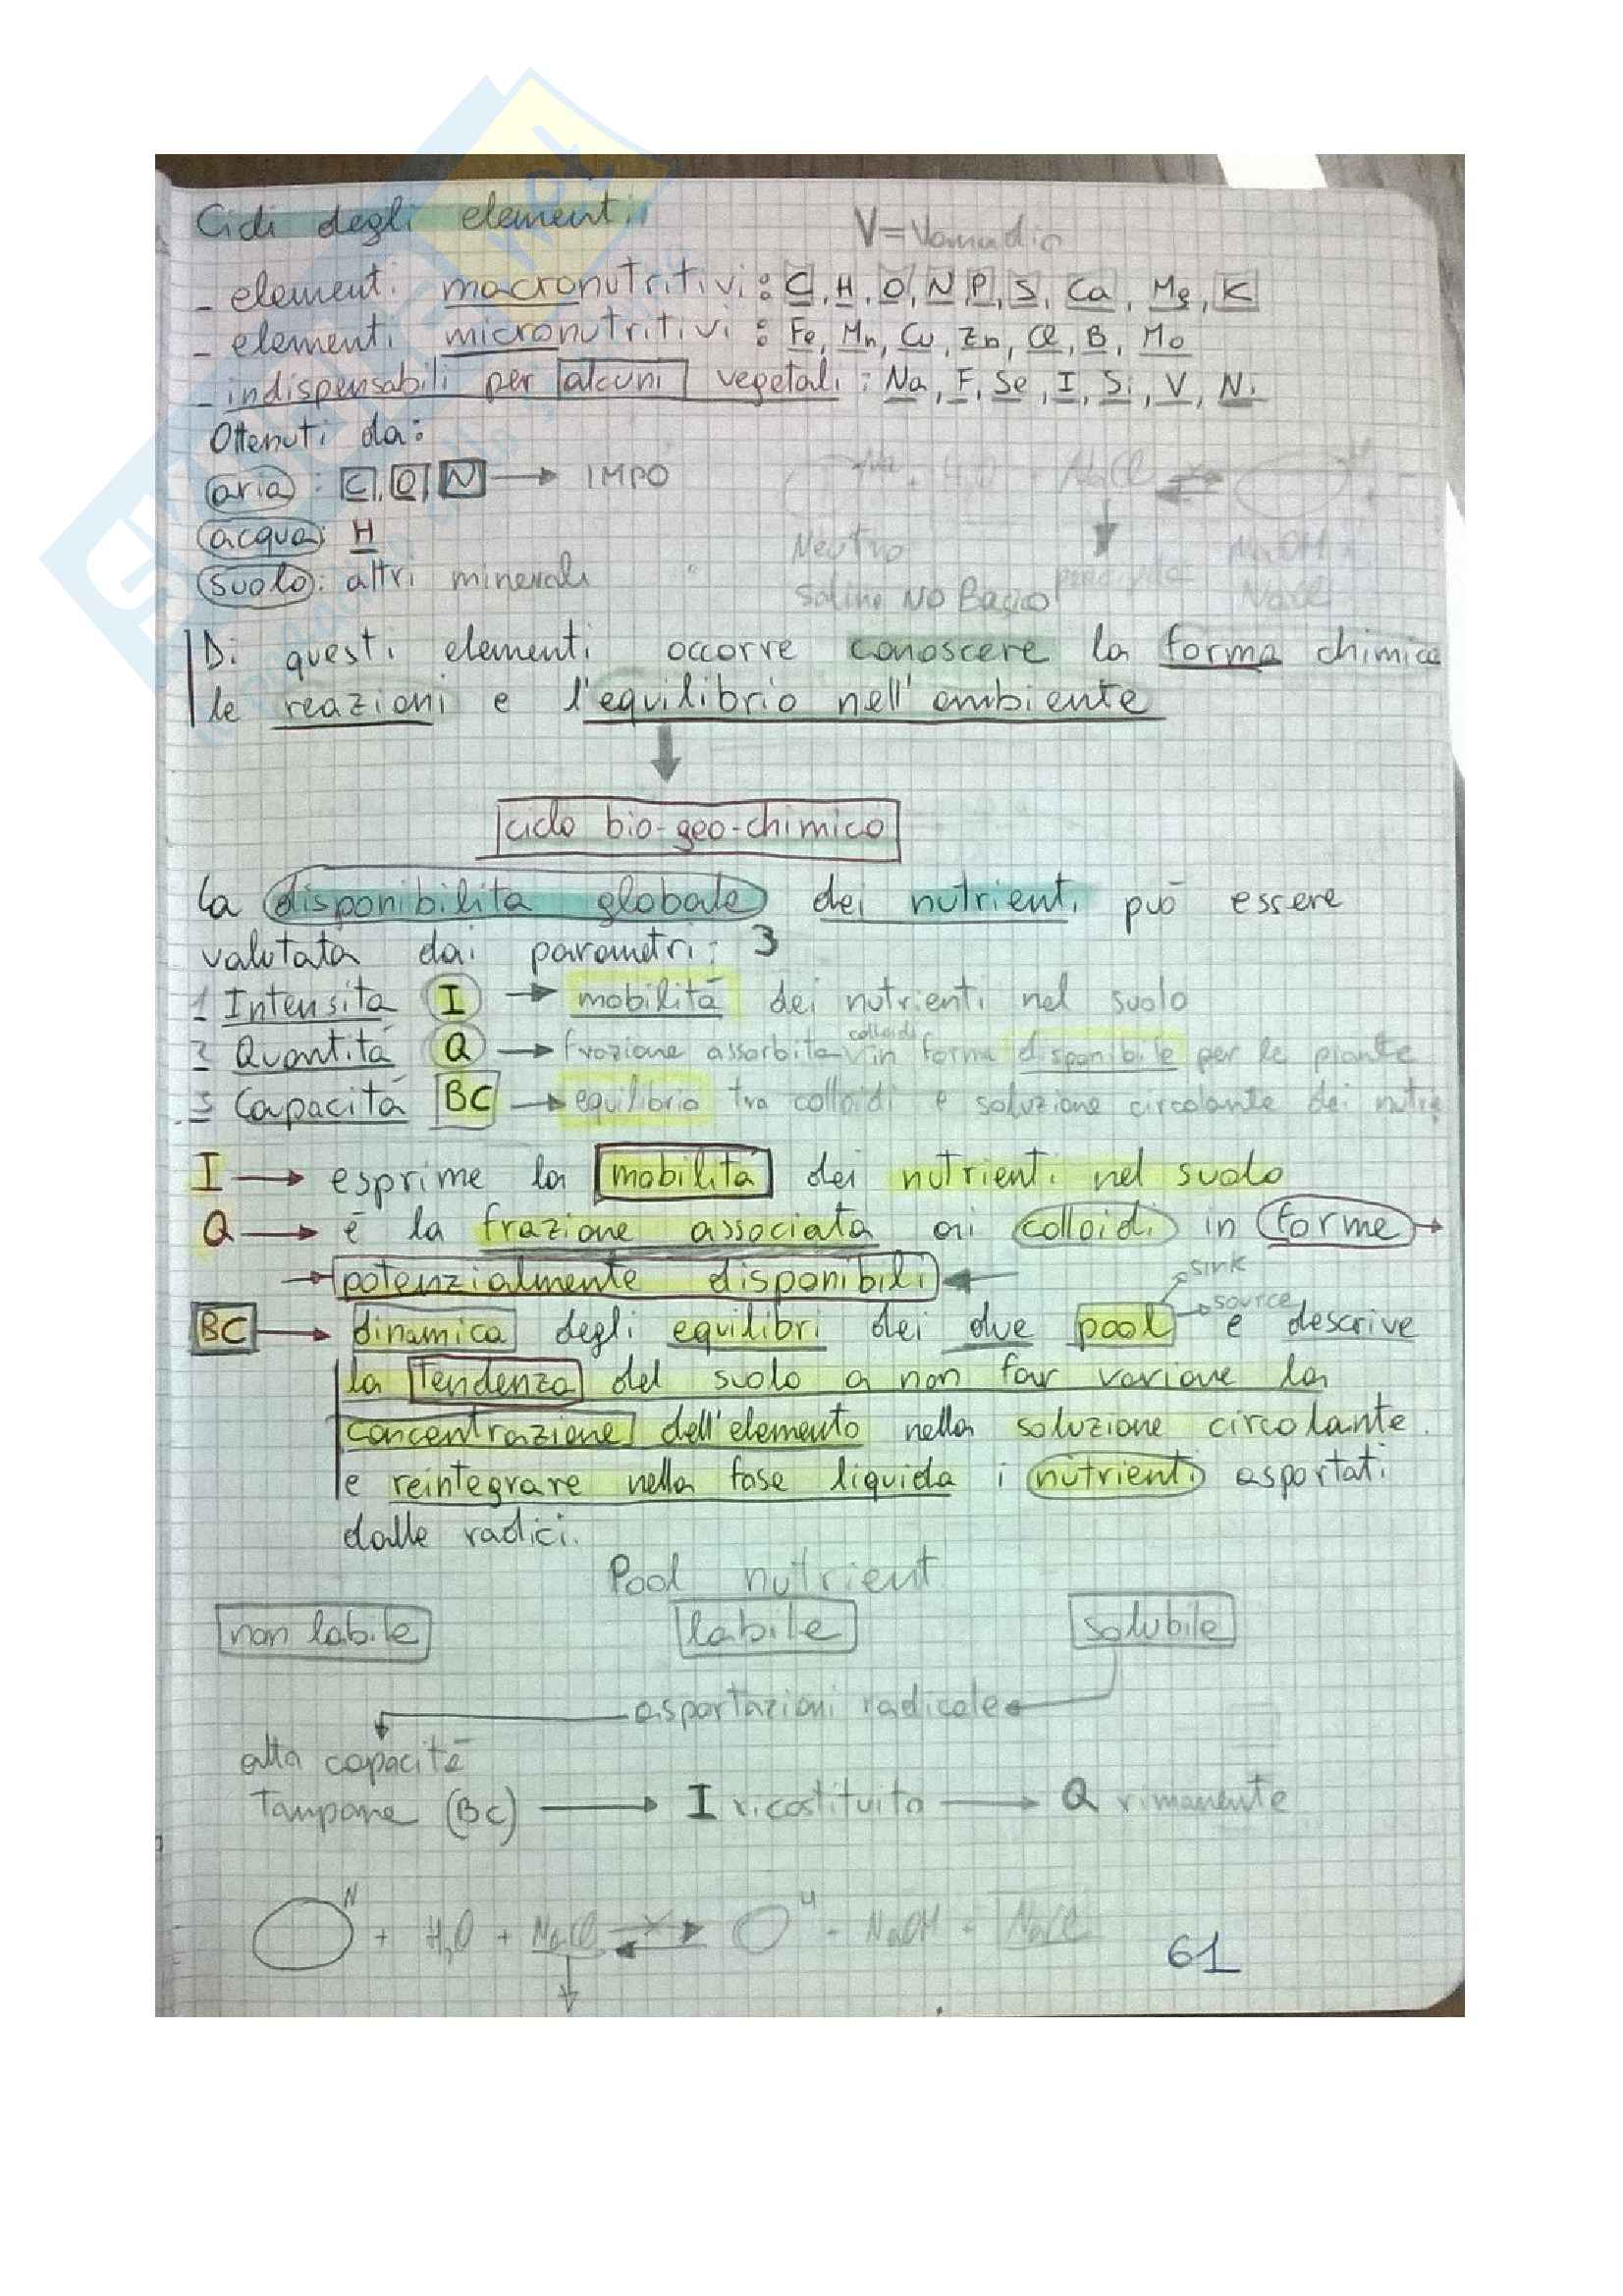 Cicli degli elementi
V = Vanadio
- elementi macronutritivi: C, H, O, N, P, S, Ca, Mg, K
- elementi micronutritivi: Fe, Mn, Cu, Zn, Cl, B, Mo
- indispensabili per alcuni vegetali: Na, F, Se, I, Si, V, Ni
Ottenuti da:
aria: C, O, N → IMPO
acqua: H
suolo: altri minerali
Neutro
NaOH
Salino NO Basico
NaCl
Di questi elementi occorre conoscere la forma chimica
le reazioni e l'equilibrio nell'ambiente
ciclo bio-geo-chimico
La disponibilità globale dei nutrienti può essere
valutata dai parametri: 3
1 Intensità I → mobilità dei nutrienti nel suolo
2 Quantità Q → frazione assorbita colloidi in forma disponibile per le piante
3 Capacità BC → equilibrio tra colloidi e soluzione circolante dei nutri
I → esprime la mobilità dei nutrienti nel suolo
Q → è la frazione associata ai colloidi in forme →
→ potenzialmente disponibili ←
sink
source
BC → dinamica degli equilibri dei due pool e descrive
la tendenza del suolo a non far variare la
concentrazione dell'elemento nella soluzione circolante
e reintegrare nella fase liquida i nutrienti asportati
dalle radici.
Pool nutrient
non labile labile solubile
asportazioni radicale
alta capacità
Tampone (BC) → I ricostituito → Q rimanente
N + H2O + NaCl ⇄ H - NaOH - NaCl
61